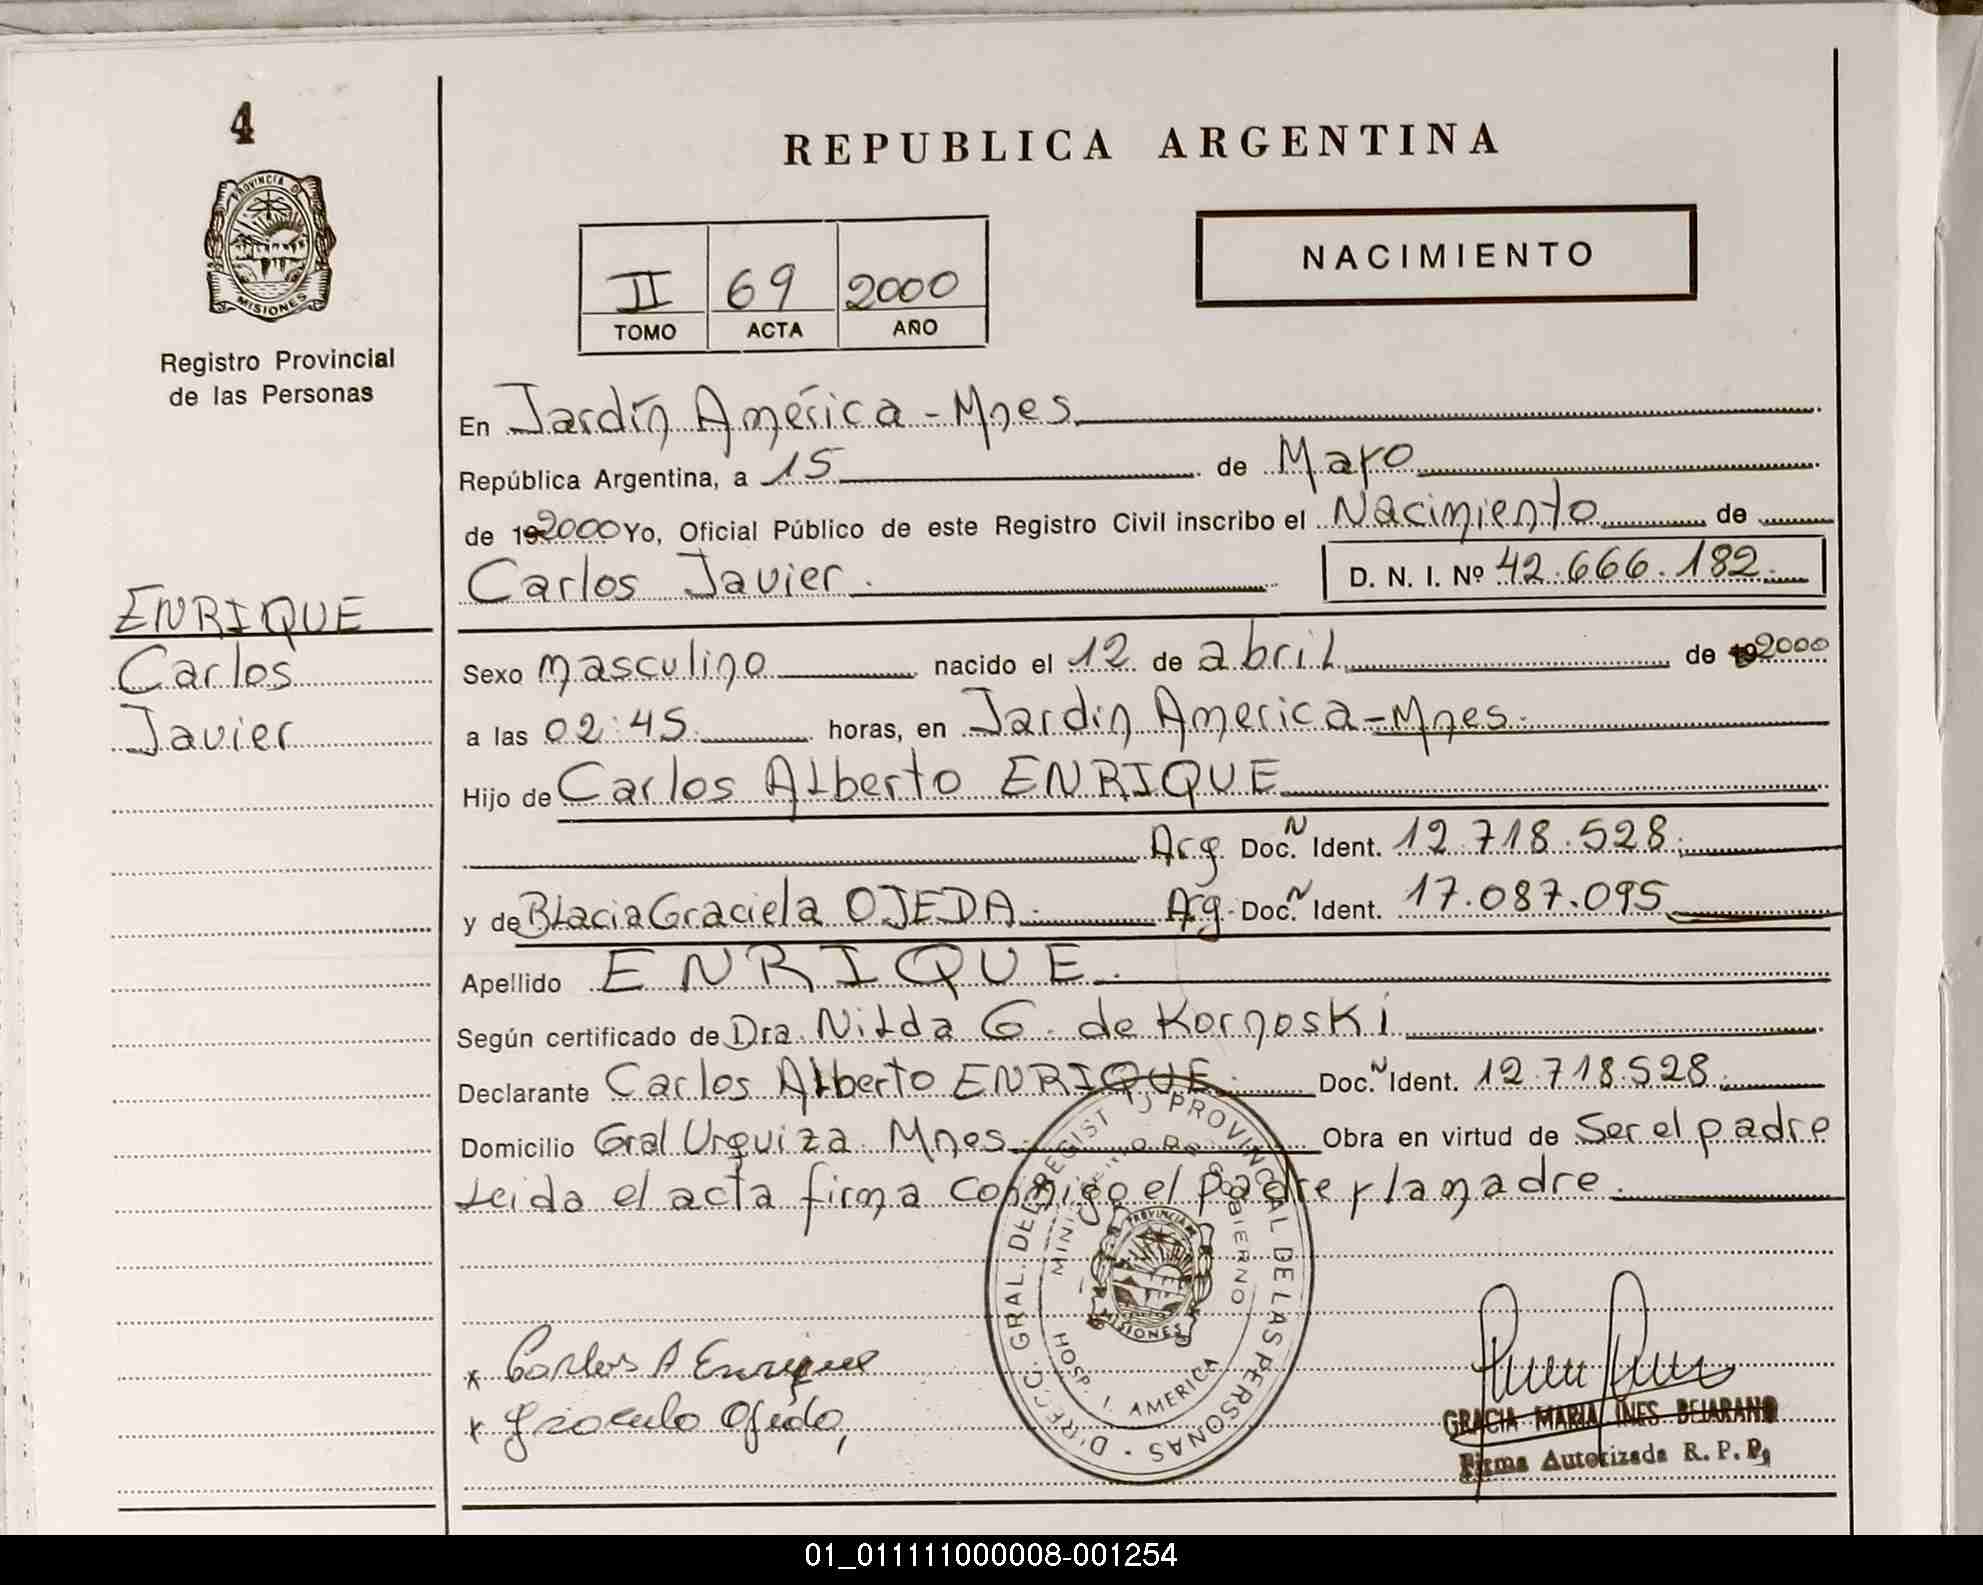 4
PROVINCIA DE
MISIONES
Registro Provincial
de las Personas
ENRIQUE
Carlos
Javier
REPUBLICA ARGENTINA
NACIMIENTO
II 69 2000
TOMO ACTA AÑO
En Jardín América - Mnes.
República Argentina, a 15 de Mayo
de 192000 Yo, Oficial Público de este Registro Civil inscribo el Nacimiento de
Carlos Javier. D. N. I. Nº 42.666.182.
Sexo masculino nacido el 12 de abril de 192000
a las 02:45 horas, en Jardin America - Mnes.
Hijo de Carlos Alberto ENRIQUE
Arg Doc. N Ident. 12.718.528.
y de BLacia Graciela OJEDA. Arg. Doc. N Ident. 17.087.095
Apellido ENRIQUE.
Según certificado de Dra. Nilda G. de Kornoski
Declarante Carlos Alberto ENRIQUE. Doc. N Ident. 12.718.528.
Domicilio Gral Urquiza Mnes. Obra en virtud de Ser el padre
Leida el acta firma conmigo el padre y la madre.
DIRECC. GRAL. DEL REGISTRO PROVINCIAL DE LAS PERSONAS
MINISTERIO DE GOBIERNO
PROVINCIA DE
MISIONES
HOSP. J. AMERICA
x Carlos A Enrique
x Graciela Ojeda,
GRACIA MARIA INES BEJARANO
Firma Autorizada R. P. P.
01_011111000008-001254